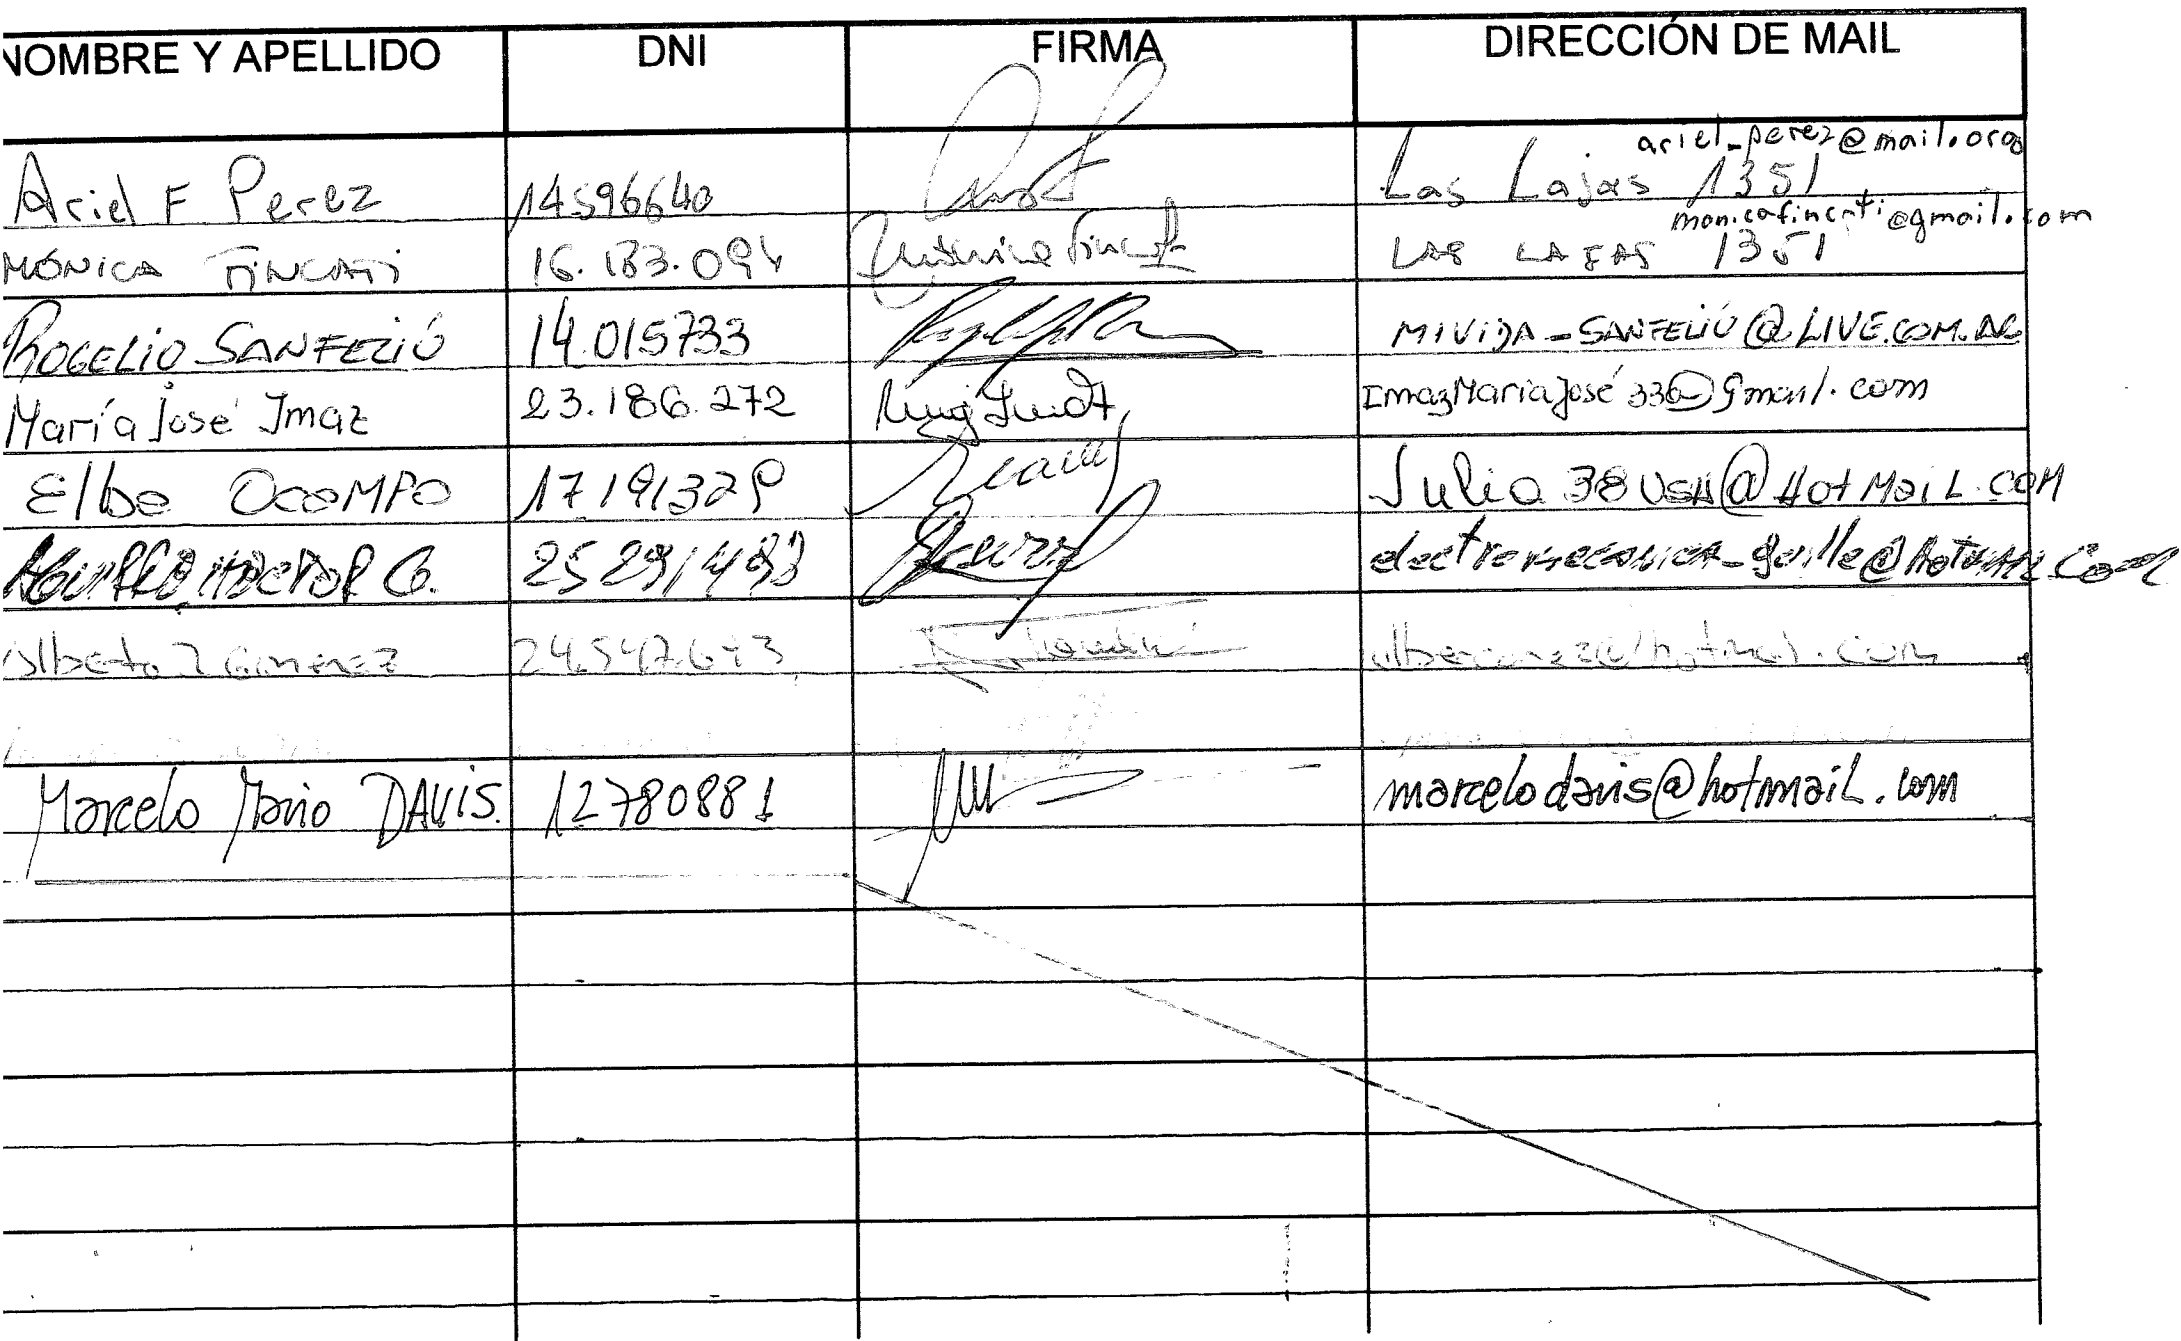 NOMBRE Y APELLIDO DNI FIRMA DIRECCIÓN DE MAIL
ariel_perez@mail.org
Ariel F Perez 14596640 Las Lajas 1351
monicafincati@gmail.com
MÓNICA FINCATI 16.183.094 LAS LAJAS 1351
ROGELIO SANFELIÚ 14.015733 MIVIDA-SANFELIÚ@LIVE.COM.AR
María José Imaz 23.186.272 ImazMaríaJosé33@gmail.com
Elba OCAMPO 17191329 Julia38USH@HOTMAIL.COM
HECTOR G. 25291493 electromecanica-guille@hotmail.com
Alberto J Gimenez 24.547.643
Marcelo Mario DAVIS. 12780881 marcelodavis@hotmail.com